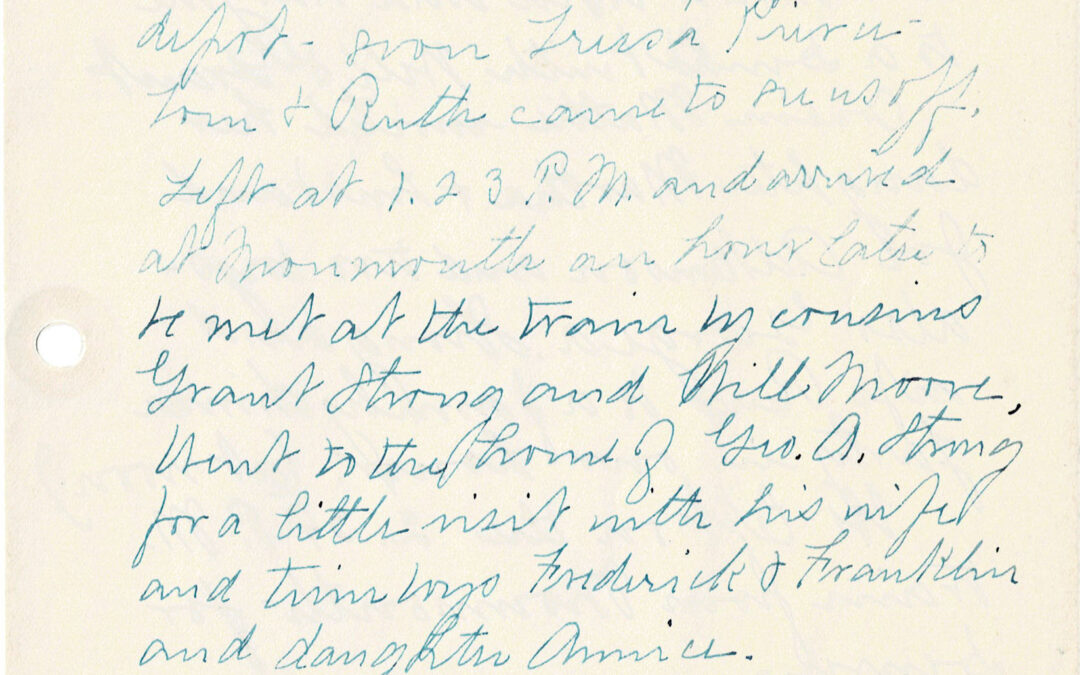 depot - soon Tressa Pierce -
Tom & Ruth came to see us off.
Left at 1.23 P.M. and arrived
at Monmouth an hour later to
be met at the train by cousins
Grant Strong and Will Moore.
Went to the home of Geo. A. Strong
for a little visit with his wife
and twin boys Frederick & Franklin
and daughter Annice.